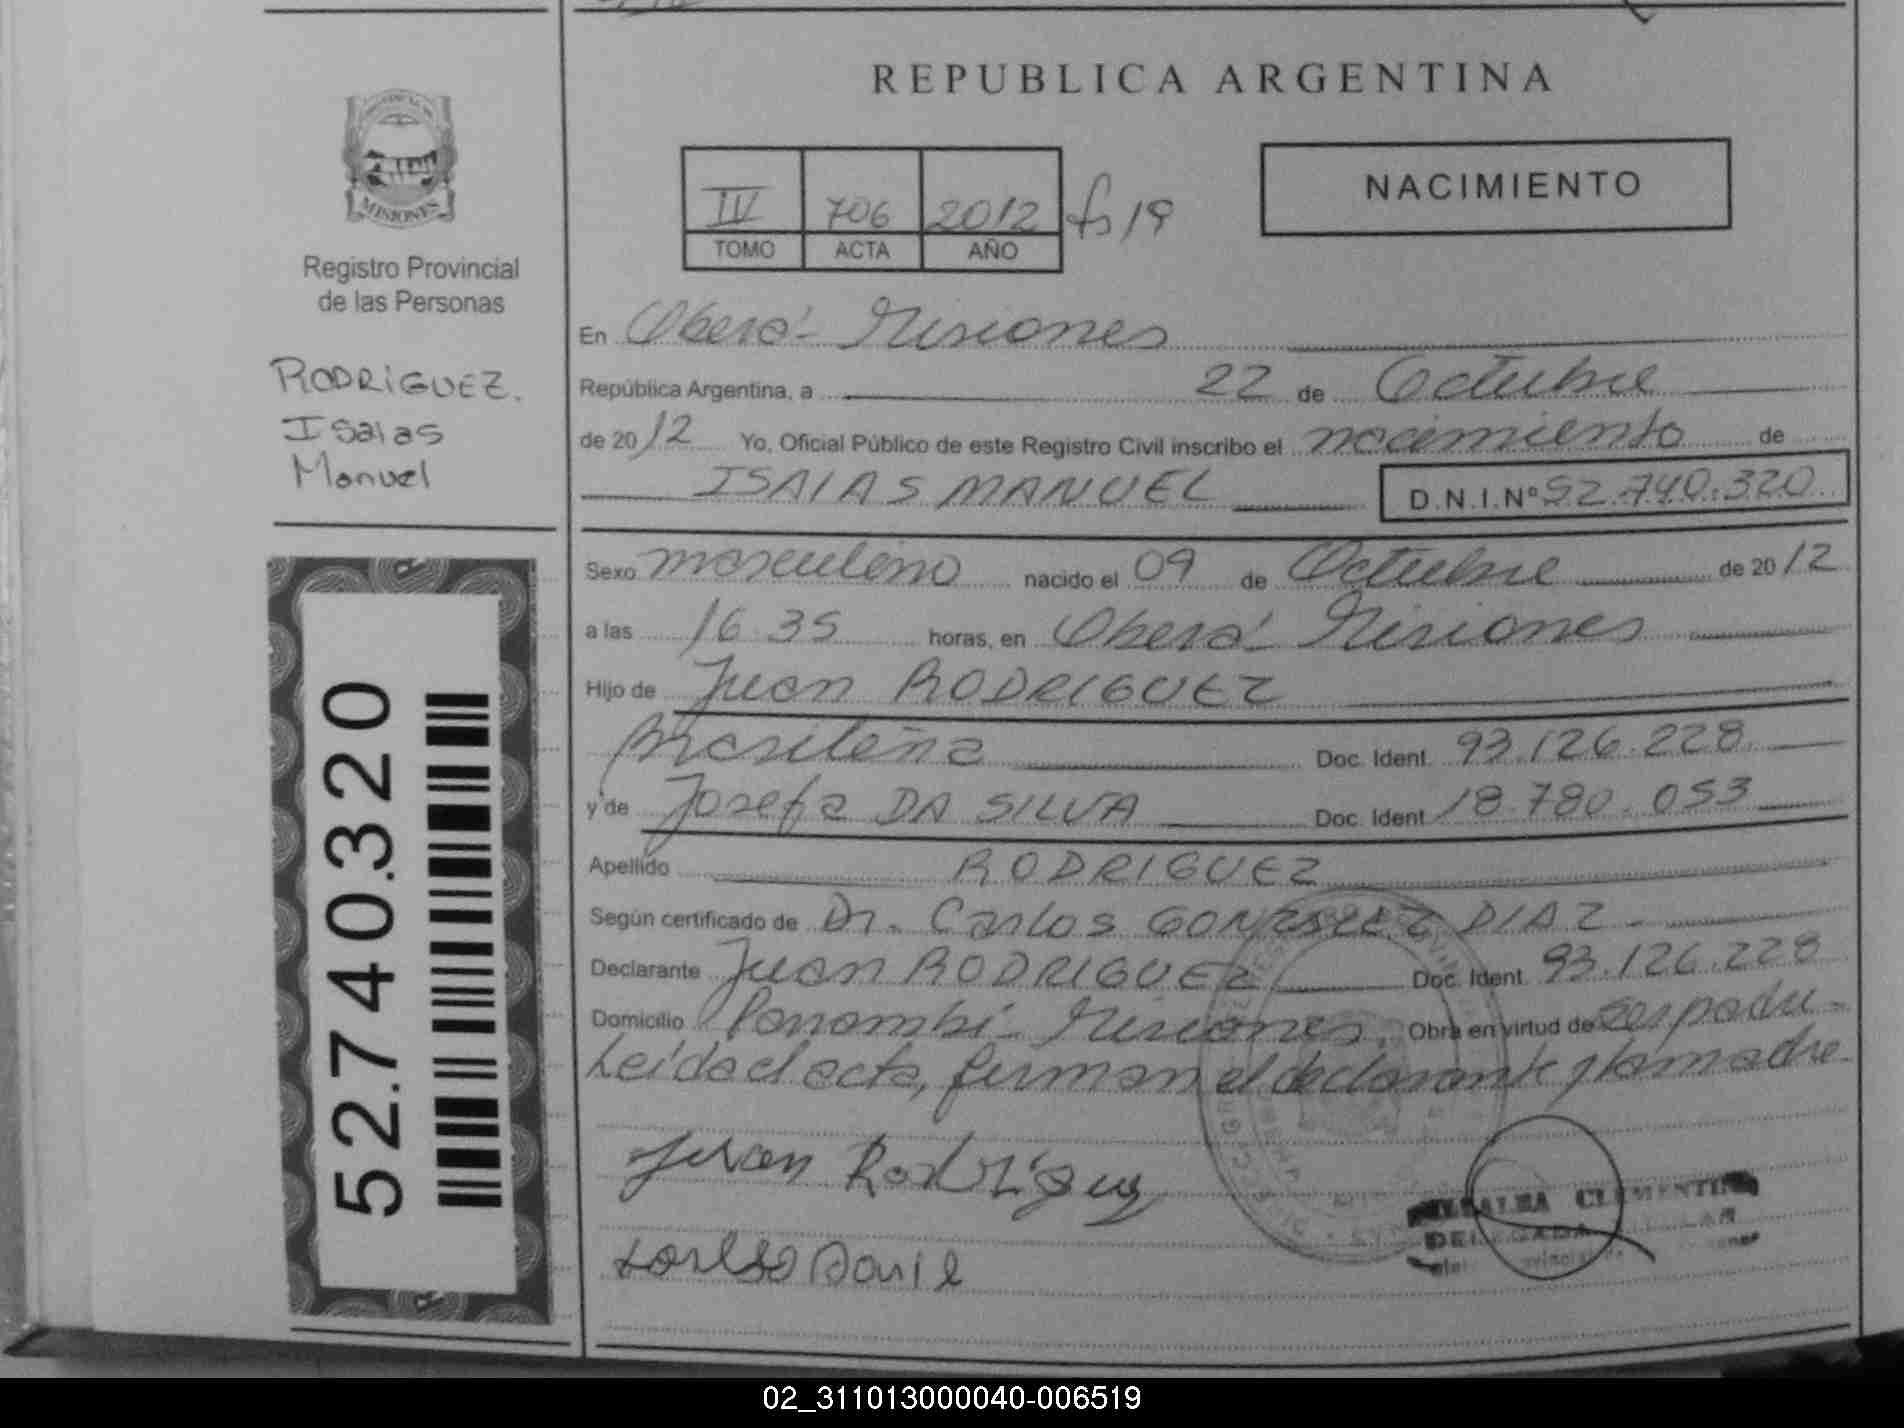 REPUBLICA ARGENTINA
MISIONES
Registro Provincial
de las Personas
RODRIGUEZ.
Isaias
Manuel
52.740.320
IV 706 2012 fs 19
TOMO ACTA AÑO
NACIMIENTO
En Oberá - Misiones
República Argentina, a 22 de Octubre
de 2012 Yo, Oficial Público de este Registro Civil inscribo el nacimiento de
ISAIAS MANUEL D.N.I.Nº 52.740.320
Sexo masculino nacido el 09 de Octubre de 2012
a las 16.35 horas, en Oberá - Misiones
Hijo de Juan RODRIGUEZ
Brasileña Doc. Ident. 93.126.228
y de Josefa DA SILVA Doc. Ident 18.780.053
Apellido RODRIGUEZ
Según certificado de Dr. Carlos GONZALEZ DIAZ
Declarante Juan RODRIGUEZ Doc. Ident. 93.126.228
Domicilio Panambí - Misiones. Obra en virtud de ser padre -
Leída el acta, firman el declarante y la madre -
Juan Rodríguez
CLEMENTINA
DELEGADA
02_311013000040-006519